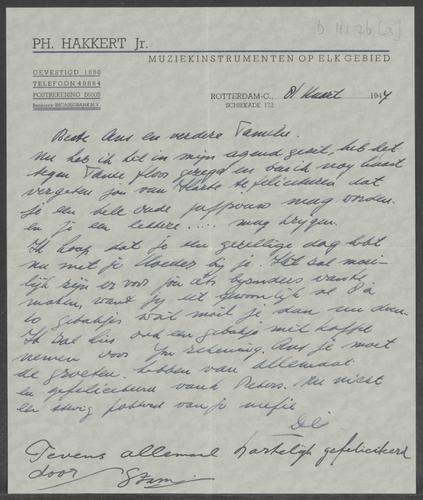 D III 76 [3]
PH. HAKKERT Jr.
MUZIEKINSTRUMENTEN OP ELK GEBIED
GEVESTIGD 1886
TELEFOON 49864
POSTREKENING
Bankiers INCASSOBANK N.V.
ROTTERDAM-C., 81 Maart 1947
SCHIEKADE 172
Beste Ans en verdere Familie.
Nu heb ik dit in mijn agend gezet, heb het
tegen Tante Floor gezegd en ben ik nog haast
vergeten jou van Harte te feliciteren dat
je een hele oude juffrouw mag worden
en je een lekkere ..... mag krygen.
Ik hoop dat je een gezellige dag hebt
nu met je Moeder bij je. Het zal moei-
lijk zijn er voor jou iets byzonders van te
maken, want jy eet gewoonlijk al 8 à
10 gebakjes wat moet je dan nu doen
Ik zal ook een gebakje met koffie
nemen voor jou rekening. Ans je moet
de groeten hebben van allemaal
en gefeliciteerd van Nu niest
een stevig van je neefje
Tevens allemaal hartelijk gefeliciteerd
door